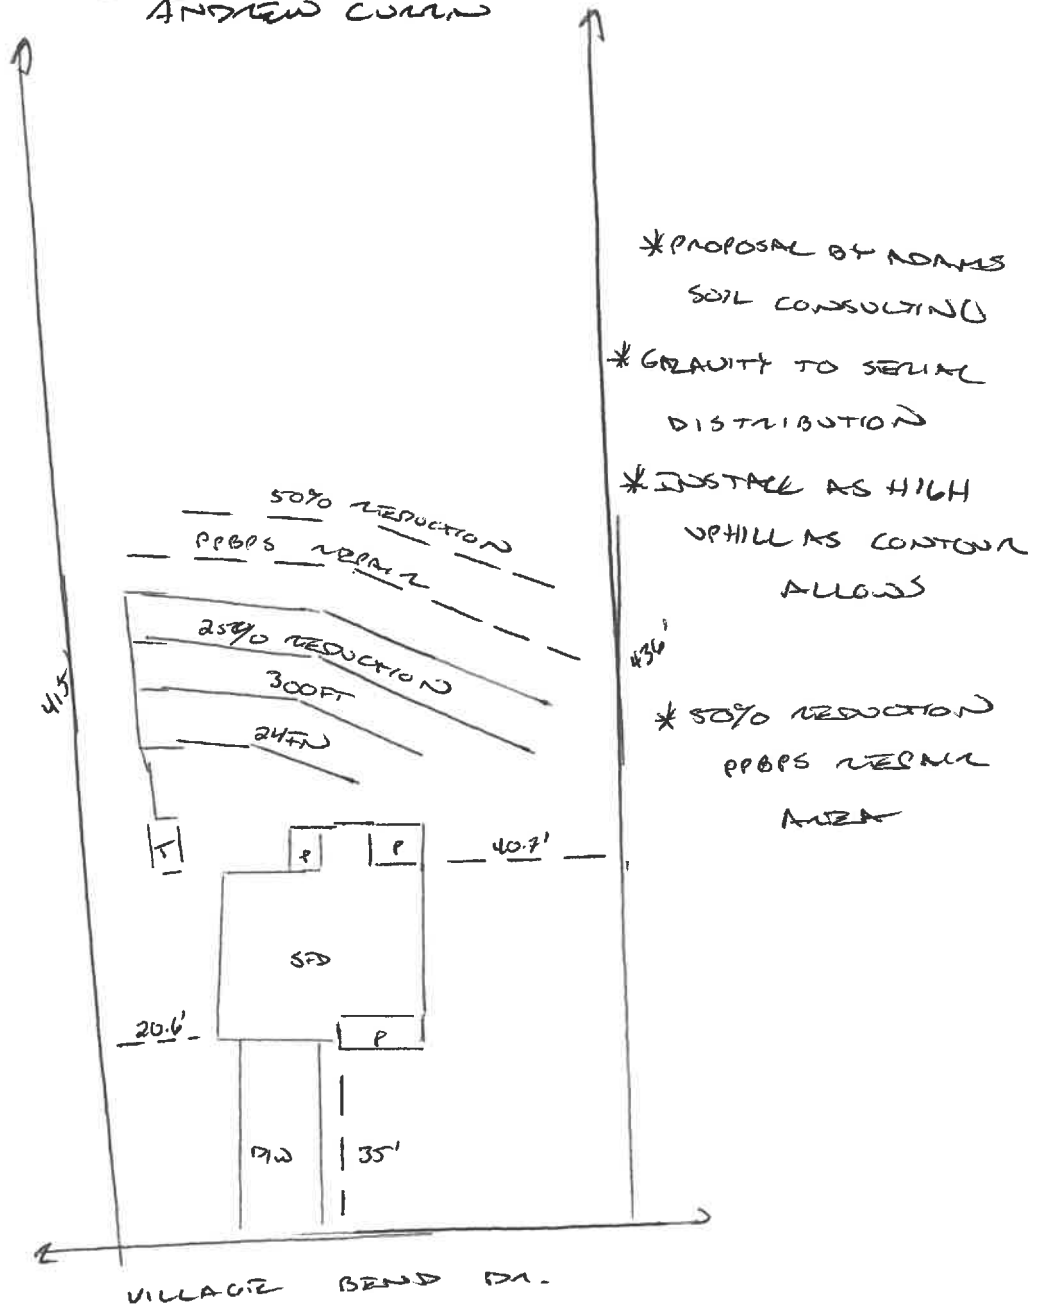 ANDREW CURRIN
*PROPOSAL BY ADAMS
SOIL CONSULTING
*GRAVITY TO SERIAL
DISTRIBUTION
*INSTALL AS HIGH
UPHILL AS CONTOUR
ALLOWS
50% REDUCTION
PPBPS REPAIR
25% REDUCTION
300FT
24IN
415
436'
*50% REDUCTION
PPBPS REPAIR
AREA
T
P
P
40.7'
SFD
20.6'
P
D/W
35'
VILLAGE BEND DR.